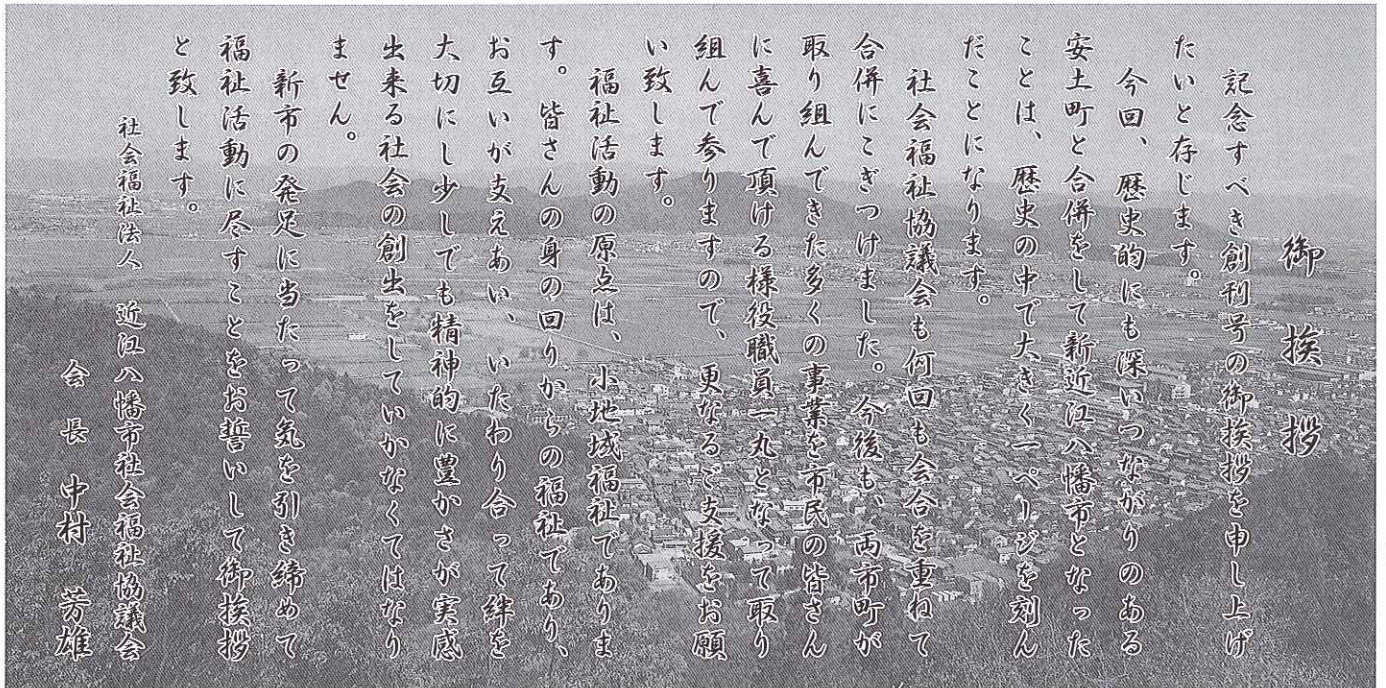 御挨拶
記念すべき創刊号の御挨拶を申し上げ
たいと存じます。
今回、歴史的にも深いつながりのある
安土町と合併をして新近江八幡市となった
ことは、歴史の中で大きく一ページを刻ん
だことになります。
社会福祉協議会も何回も会合を重ねて
合併にこぎつけました。今後も、両市町が
取り組んできた多くの事業を市民の皆さん
に喜んで頂ける様役職員一丸となって取り
組んで参りますので、更なるご支援をお願
い致します。
福祉活動の原点は、小地域福祉でありま
す。皆さんの身の回りからの福祉であり、
お互いが支えあい、いたわり合って絆を
大切にし少しでも精神的に豊かさが実感
出来る社会の創出をしていかなくてはなり
ません。
新市の発足に当たって気を引き締めて
福祉活動に尽すことをお誓いして御挨拶
と致します。
社会福祉法人 近江八幡市社会福祉協議会
会長 中村 芳雄